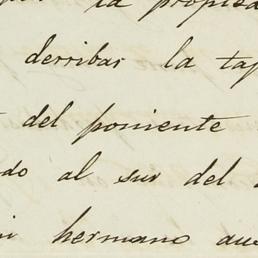 la propied
derribar la tap
del poniente
do al sur del
mi hermano que